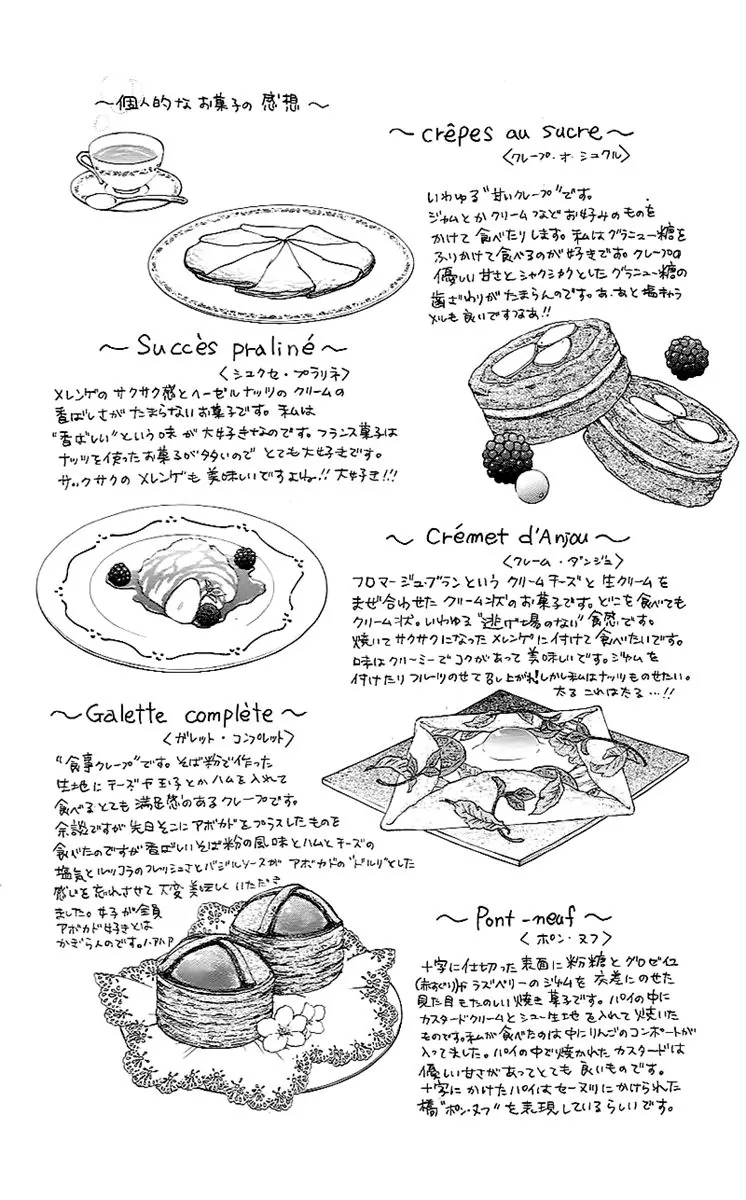 ～個人的なお菓子の感想～
～crêpes au sucre～
〈クレープ・オ・シュクル〉
いわゆる"甘いクレープ"です。
ジャムとかクリームなどお好みのものを
かけて食べたりします。私はグラニュー糖を
ふりかけて食べるのが好きです。クレープの
優しい甘さとシャクシャクとしたグラニュー糖の
歯ざわりがたまらんのです。あ、あと塩キャラ
メルも良いですなあ!!
～Succès praliné～
〈シュクセ・プラリネ〉
メレンゲのサクサク感とヘーゼルナッツのクリームの
香ばしさがたまらないお菓子です。私は
"香ばしい"という味が大好きなのです。フランス菓子は
ナッツを使ったお菓子が多いのでとても大好きです。
サックサクのメレンゲも美味しいですよね!!大好き!!!
～Crémet d'Anjou～
〈クレーム・ダンジュ〉
フロマージュ・ブランというクリームチーズと生クリームを
まぜ合わせたクリーム状のお菓子です。どこを食べても
クリーム状。いわゆる"逃げ場のない"食感です。
焼いてサクサクになったメレンゲに付けて食べたいです。
味はクリーミーでコクがあって美味しいです。ジャムを
付けたりフルーツのせて召し上がれ!しかし私はナッツものせたい。
太る これは太る…!!
～Galette complète～
〈ガレット・コンプレット〉
"食事クレープ"です。そば粉で作った
生地にチーズや玉子とかハムを入れて
食べるとても満足感のあるクレープです。
余談ですが先日そこにアボカドをプラスしたものを
食べたのですが香ばしいそば粉の風味とハムとチーズの
塩気とルッコラのフレッシュさとバジルソースがアボカドの"ドルリ"とした
感じを忘れさせて大変美味しくいただき
ました。女子が全員
アボカド好きとは
かぎらんのです。ハハハ
～Pont-neuf～
〈ポン・ヌフ〉
十字に仕切った表面に粉糖とグロゼイユ
(赤すぐり)やラズベリーのジャムを交差にのせた
見た目もたのしい焼き菓子です。パイの中に
カスタードクリームとシュー生地を入れて焼いた
ものです。私が食べたのは中にりんごのコンポートが
入ってました。パイの中で焼かれたカスタードは
優しい甘さがあってとても良いものです。
十字にかけたパイはセーヌ川にかけられた
橋"ポン・ヌフ"を表現しているらしいです。